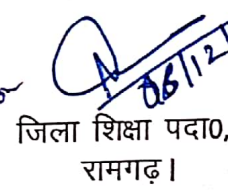 06/12
जिला शिक्षा पदा0,
रामगढ़।